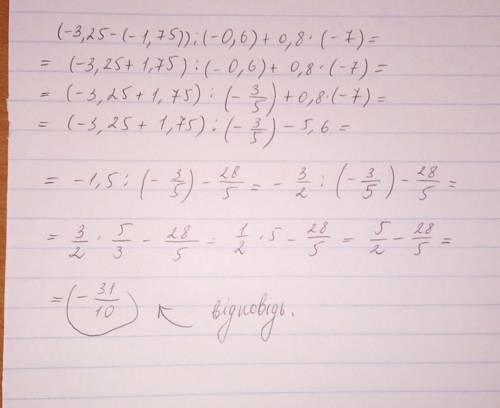 (-3,25-(-1,75)):(-0,6)+0,8·(-7)=
= (-3,25+1,75):(-0,6)+ 0,8·(-7)=
= (-3,25+1,75):(-3/5)+0,8·(-7)=
= (-3,25+1,75):(-3/5)-5,6=
= -1,5:(-3/5)-28/5=-3/2:(-3/5)-28/5=
= 3/2·5/3-28/5=1/2·5-28/5=5/2-28/5=
=(-31/10) відповідь.